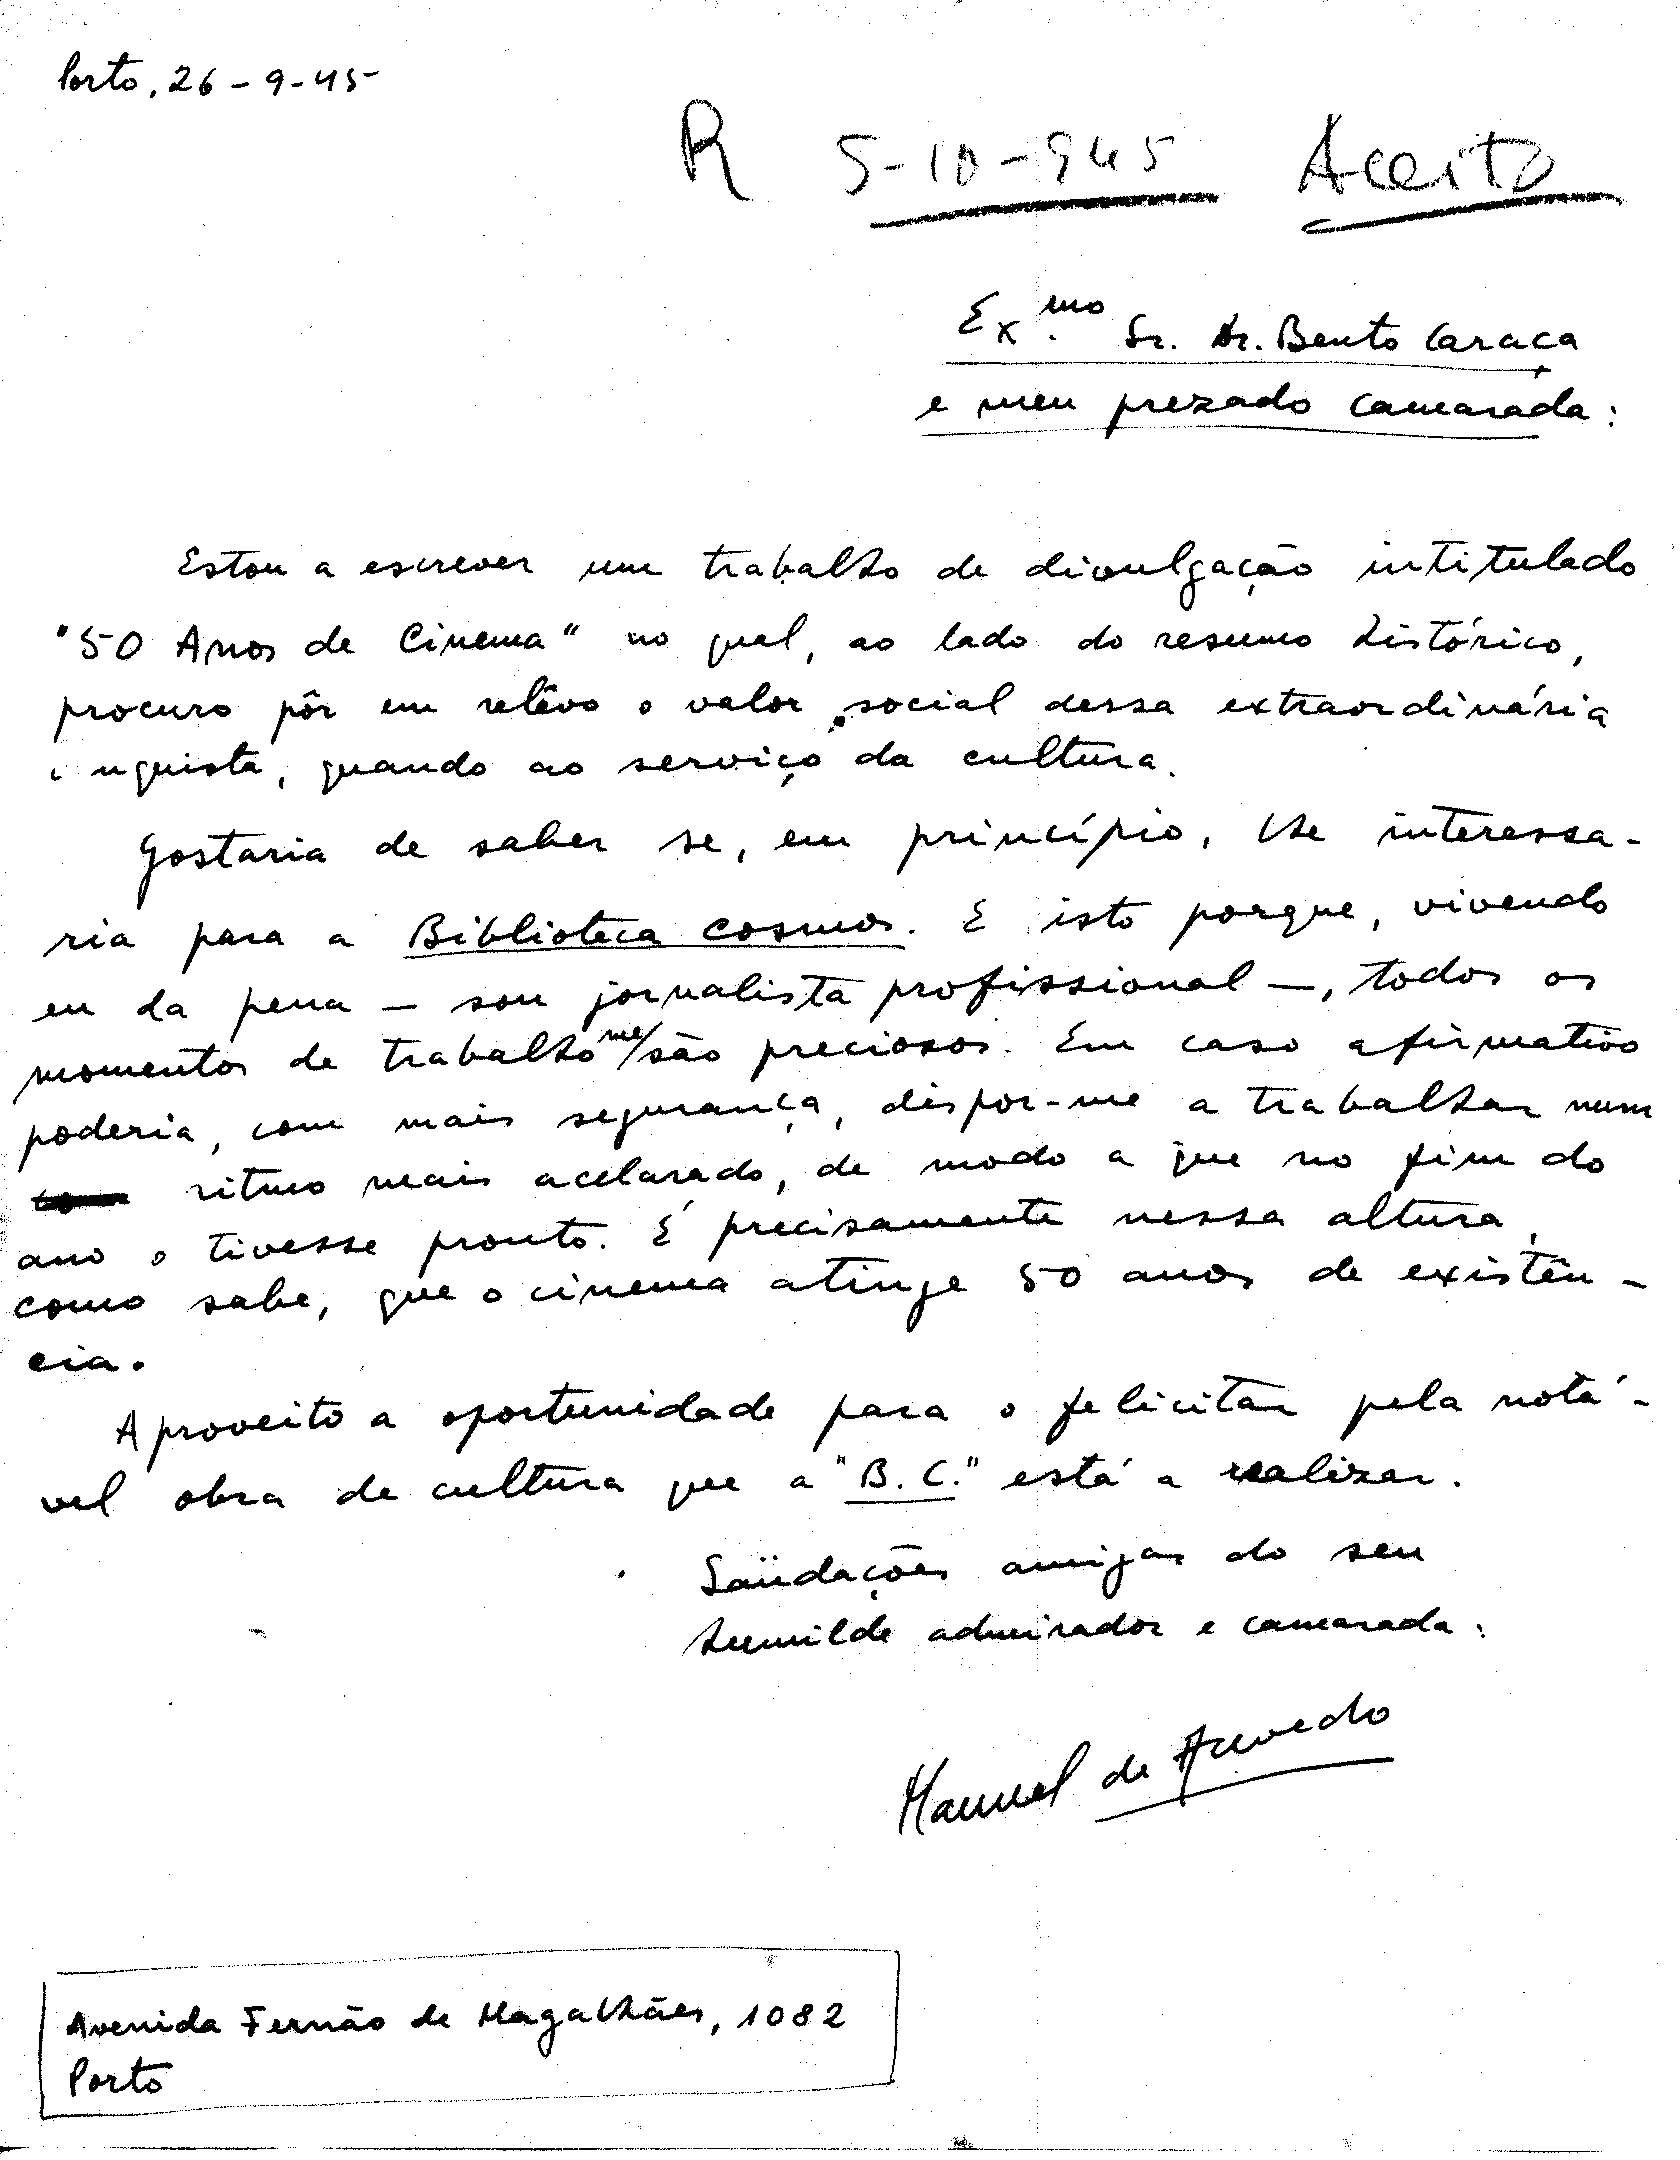 Porto, 26-9-45
R 5-10-945 Aceito
Ex.mo Sr. Dr. Bento Caraça
e meu prezado camarada:
Estou a escrever um trabalho de divulgação intitulado
"50 Anos de Cinema" no qual, ao lado do resumo histórico,
procuro pôr em relêvo o valor social dessa extraordinária
nquista, quando ao serviço da cultura.
Gostaria de saber se, em princípio, lhe interessa-
ria para a Biblioteca Cosmos. E isto porque, vivendo
eu da pena — sou jornalista profissional —, todos os
momentos de trabalho me são preciosos. Em caso afirmativo
poderia, com mais segurança, dispor-me a trabalhar num
ritmo mais acelarado, de modo a que no fim do
ano o tivesse pronto. É precisamente nessa altura,
como sabe, que o cinema atinge 50 anos de existên-
cia.
Aproveito a oportunidade para o felicitar pela notá-
vel obra de cultura que a "B. C." está a realizar.
Saüdações amigas do seu
humilde admirador e camarada:
Manuel de Azevedo
Avenida Fernão de Magalhães, 1082
Porto